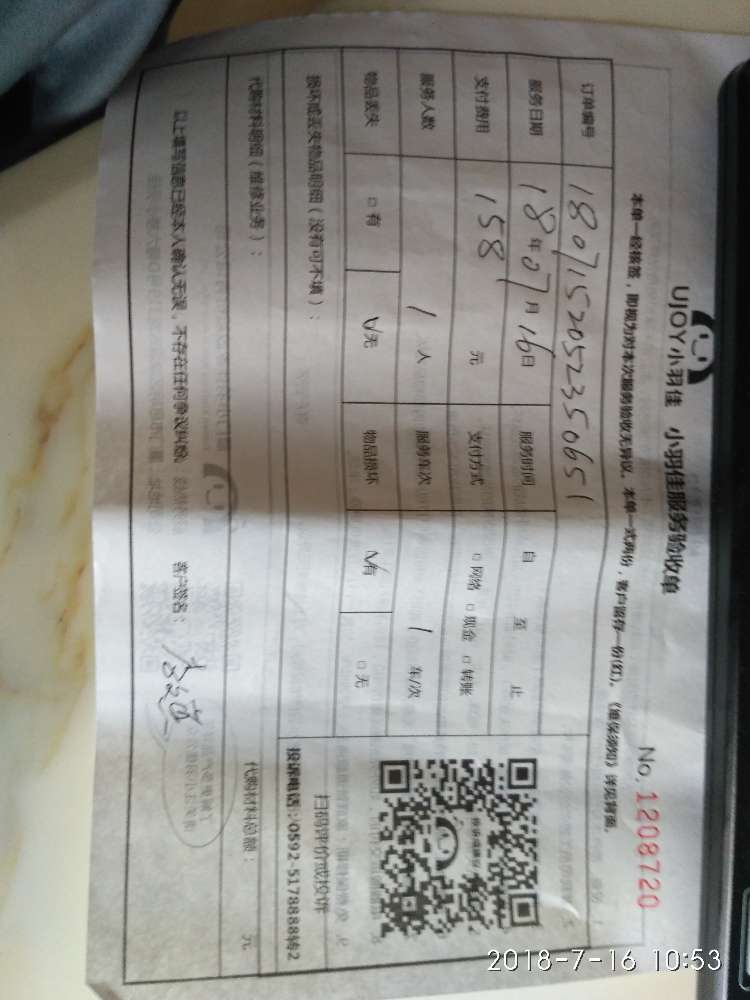 UJOY小羽佳 小羽佳服务验收单
No. 1208720
本单一经核签，即视为对本次服务验收无异议。本单一式两份，客户留存一份(红)。《维保须知》详见背面。
订单编号 180715205235065​1
服务日期 18年07月16日 服务时间 自 至 止
支付费用 158 元 支付方式 □网络 □现金 □转账
服务人数 1 人 服务车次 1 车/次
物品丢失 □有 √无 物品损坏 √有 □无
损坏或丢失物品明细（没有可不填）：
扫码评价或投诉
投诉电话：0592-5178888转2
代购材料明细（维修业务）：
代购材料总额： 元
以上填写信息已经本人确认无误，不存在任何争议纠纷。 客户签名：
2018-7-16 10:53